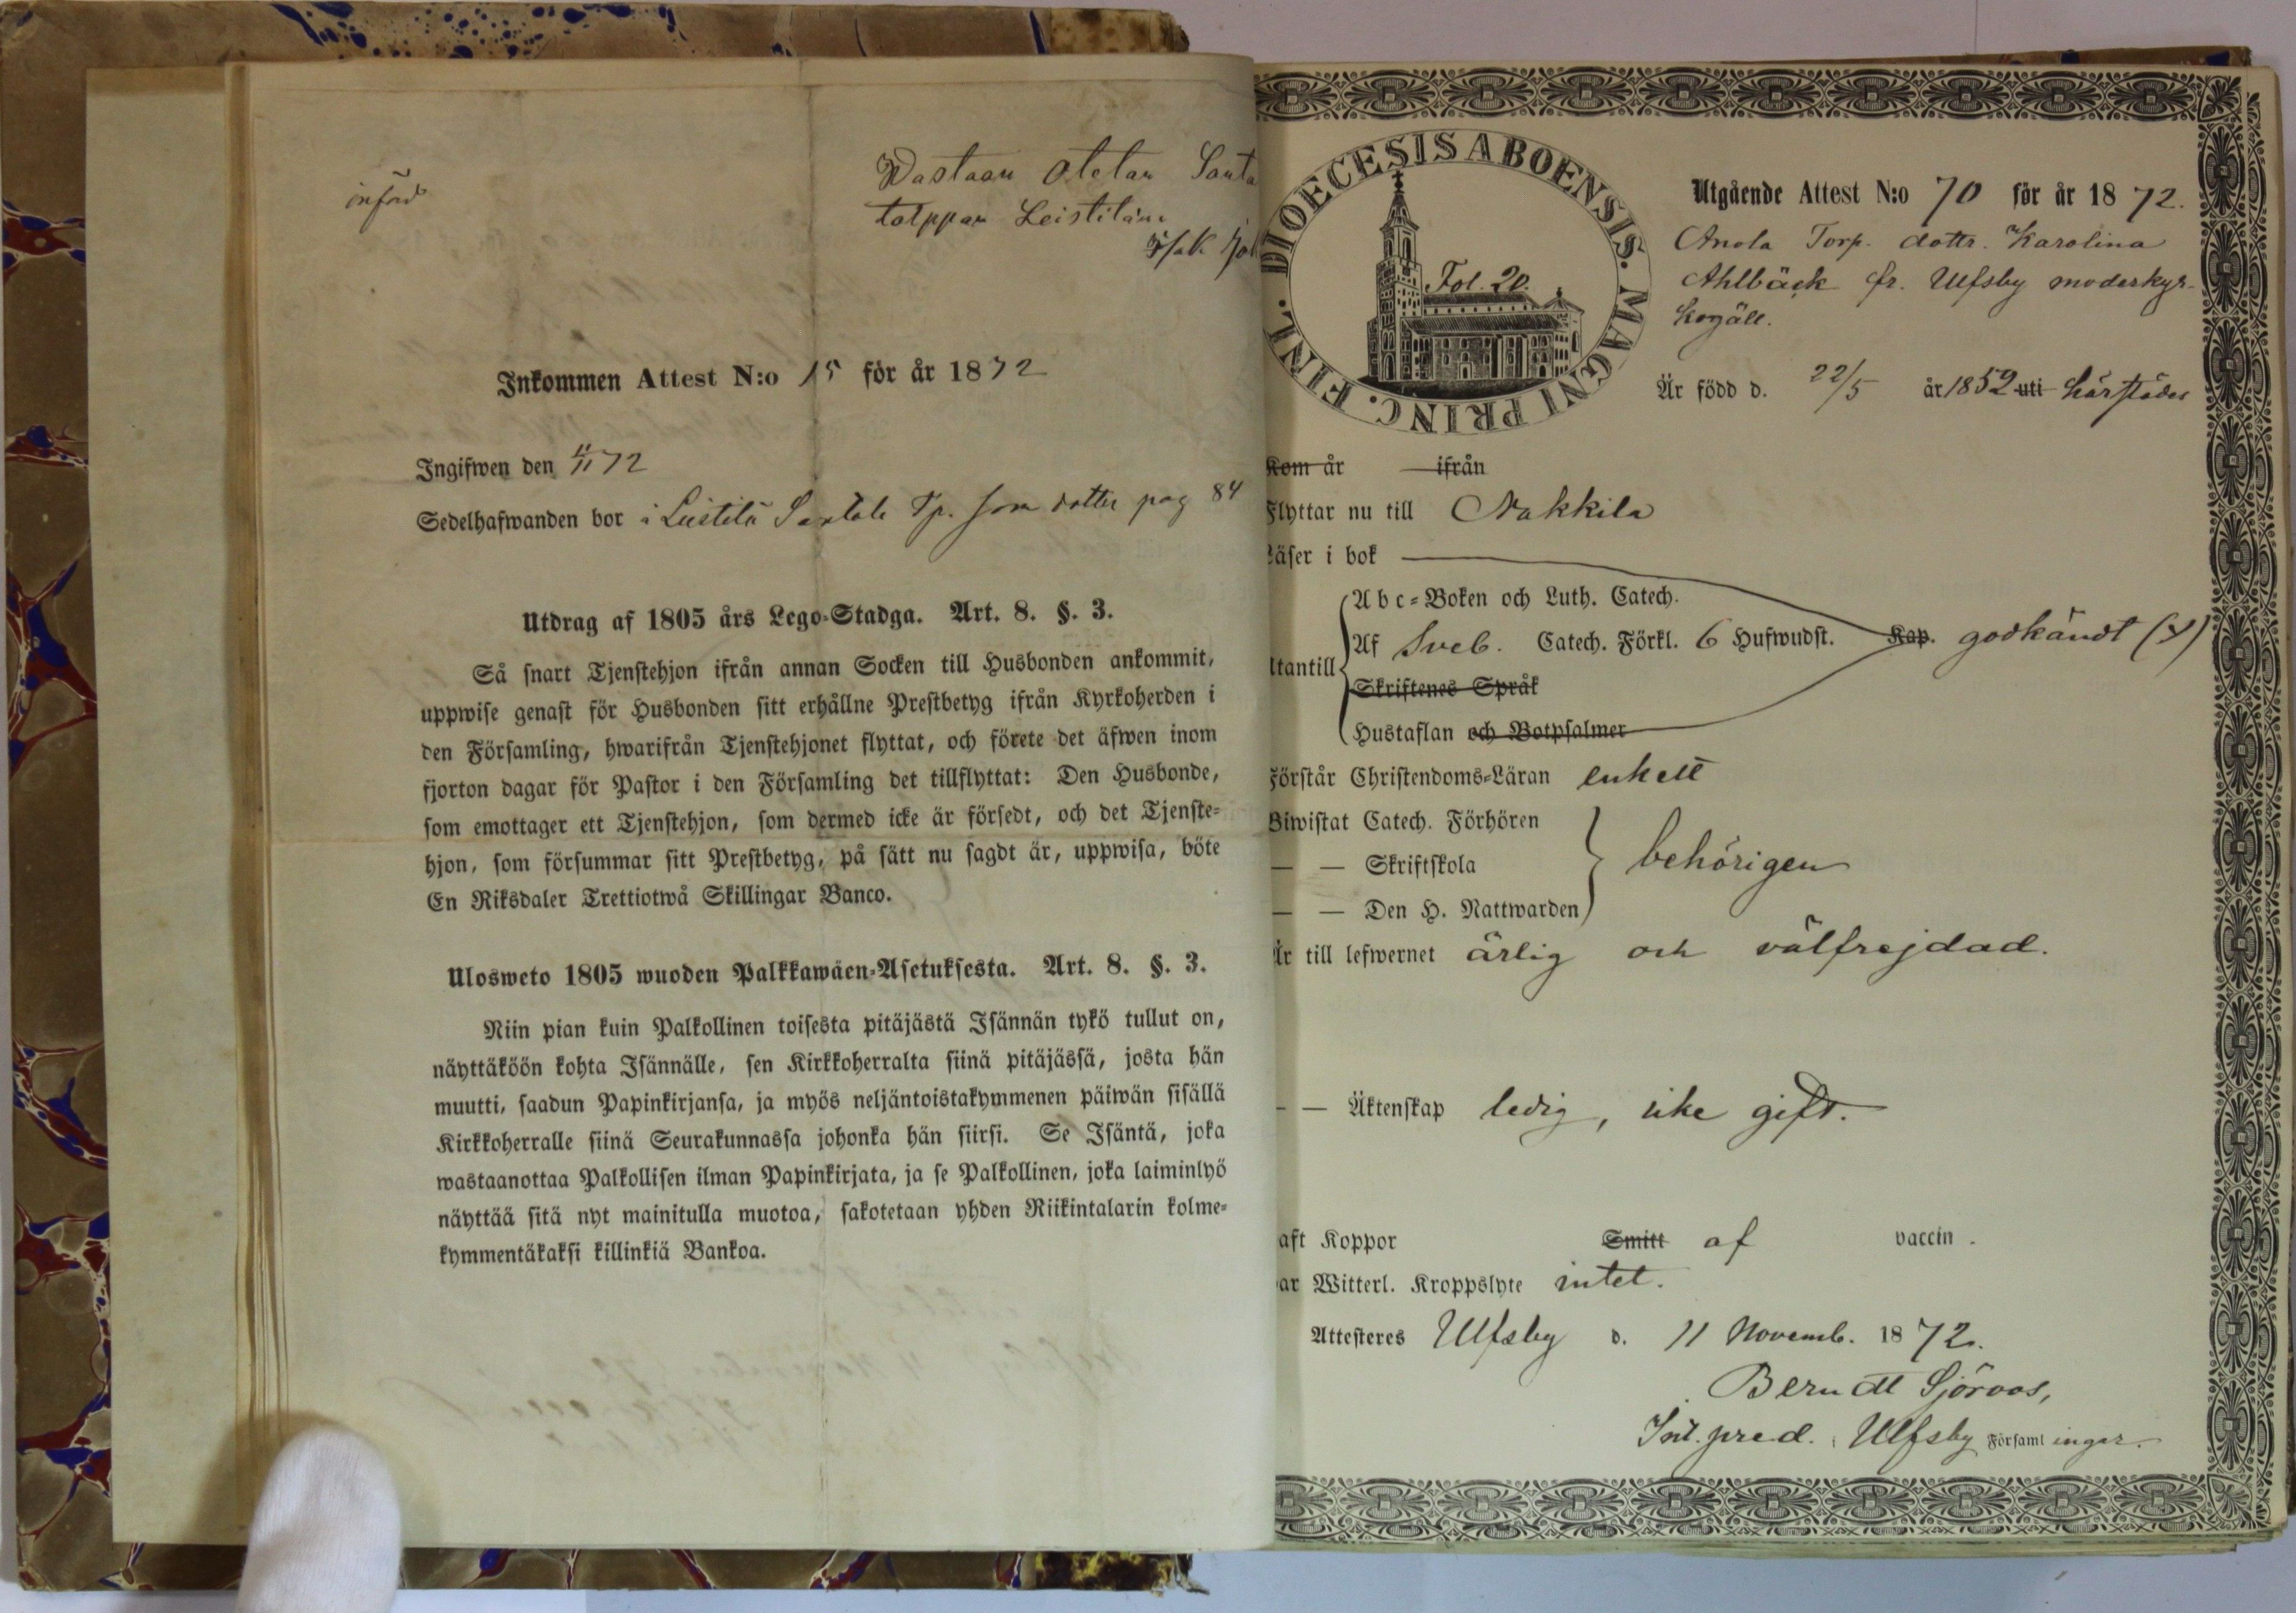 införd
Wastaan otetan Santa
talppan Leistilän
Isak
Inkommen Attest N:o 15 för år 1872
Ingifwen den 11/11 72
Sedelhafwanden bor i Leistilä Santala Tp. som dotter pag 84
Utdrag af 1805 års Lego-Stadga. Art. 8. §. 3.
Så snart Tjenstehjon ifrån annan Socken till Husbonden ankommit,
uppwise genast för Husbonden sitt erhållne Prestbetyg ifrån Kyrkoherden i
den Församling, hwarifrån Tjenstehjonet flyttat, och förete det äfwen inom
fjorton dagar för Pastor i den Församling det tillflyttat: Den Husbonde,
som emottager ett Tjenstehjon, som dermed icke är försedt, och det Tjenste-
hjon, som försummar sitt Prestbetyg, på sätt nu sagdt är, uppwisa, böte
En Riksdaler Trettiotwå Skillingar Banco.
Ulosweto 1805 wuoden Palkkawäen-Asetuksesta. Art. 8. §. 3.
Niin pian kuin Palkollinen toisesta pitäjästä Isännän tykö tullut on,
näyttäköön kohta Isännälle, sen Kirkkoherralta siinä pitäjässä, josta hän
muutti, saadun Papinkirjansa, ja myös neljäntoistakymmenen päiwän sisällä
Kirkkoherralle siinä Seurakunnassa johonka hän siirsi. Se Isäntä, joka
wastaanottaa Palkollisen ilman Papinkirjata, ja se Palkollinen, joka laiminlyö
näyttää sitä nyt mainitulla muotoa, sakotetaan yhden Riikintalarin kolme-
kymmentäkaksi killinkiä Bankoa.
FINL. DIOECESIS ABOENSIS. MAGNI PRINC.
Fol. 20.
Utgående Attest N:o 70 för år 1872.
Anola Torp. dottr. Karolina
Ahlbäck fr. Ulfsby moderkyr-
kogäll.
Är född d. 22/5 år 1852 uti härstädes
Kom år ifrån
Flyttar nu till Nakkila
Läser i bok
Abc-Boken och Luth. Catech.
Utantill Af Sveb. Catech. Förkl. 6 Hufwudst. Kap. godkändt (y)
Skriftenes Språk
Hustaflan och Botpsalmer
Förstår Christendoms-Läran enkelt
Biwistat Catech. Förhören
— — Skriftskola behörigen
— — Den H. Nattwarden
Är till lefwernet ärlig och välfrejdad.
— — Äktenskap ledig, icke gift.
aft Koppor Smitt af vaccin.
ar Witterl. Kroppslyte intet.
Attesteres Ulfsby d. 11 Novemb. 1872.
Berndt Sjöroos,
pred. i Ulfsby Församlingar.